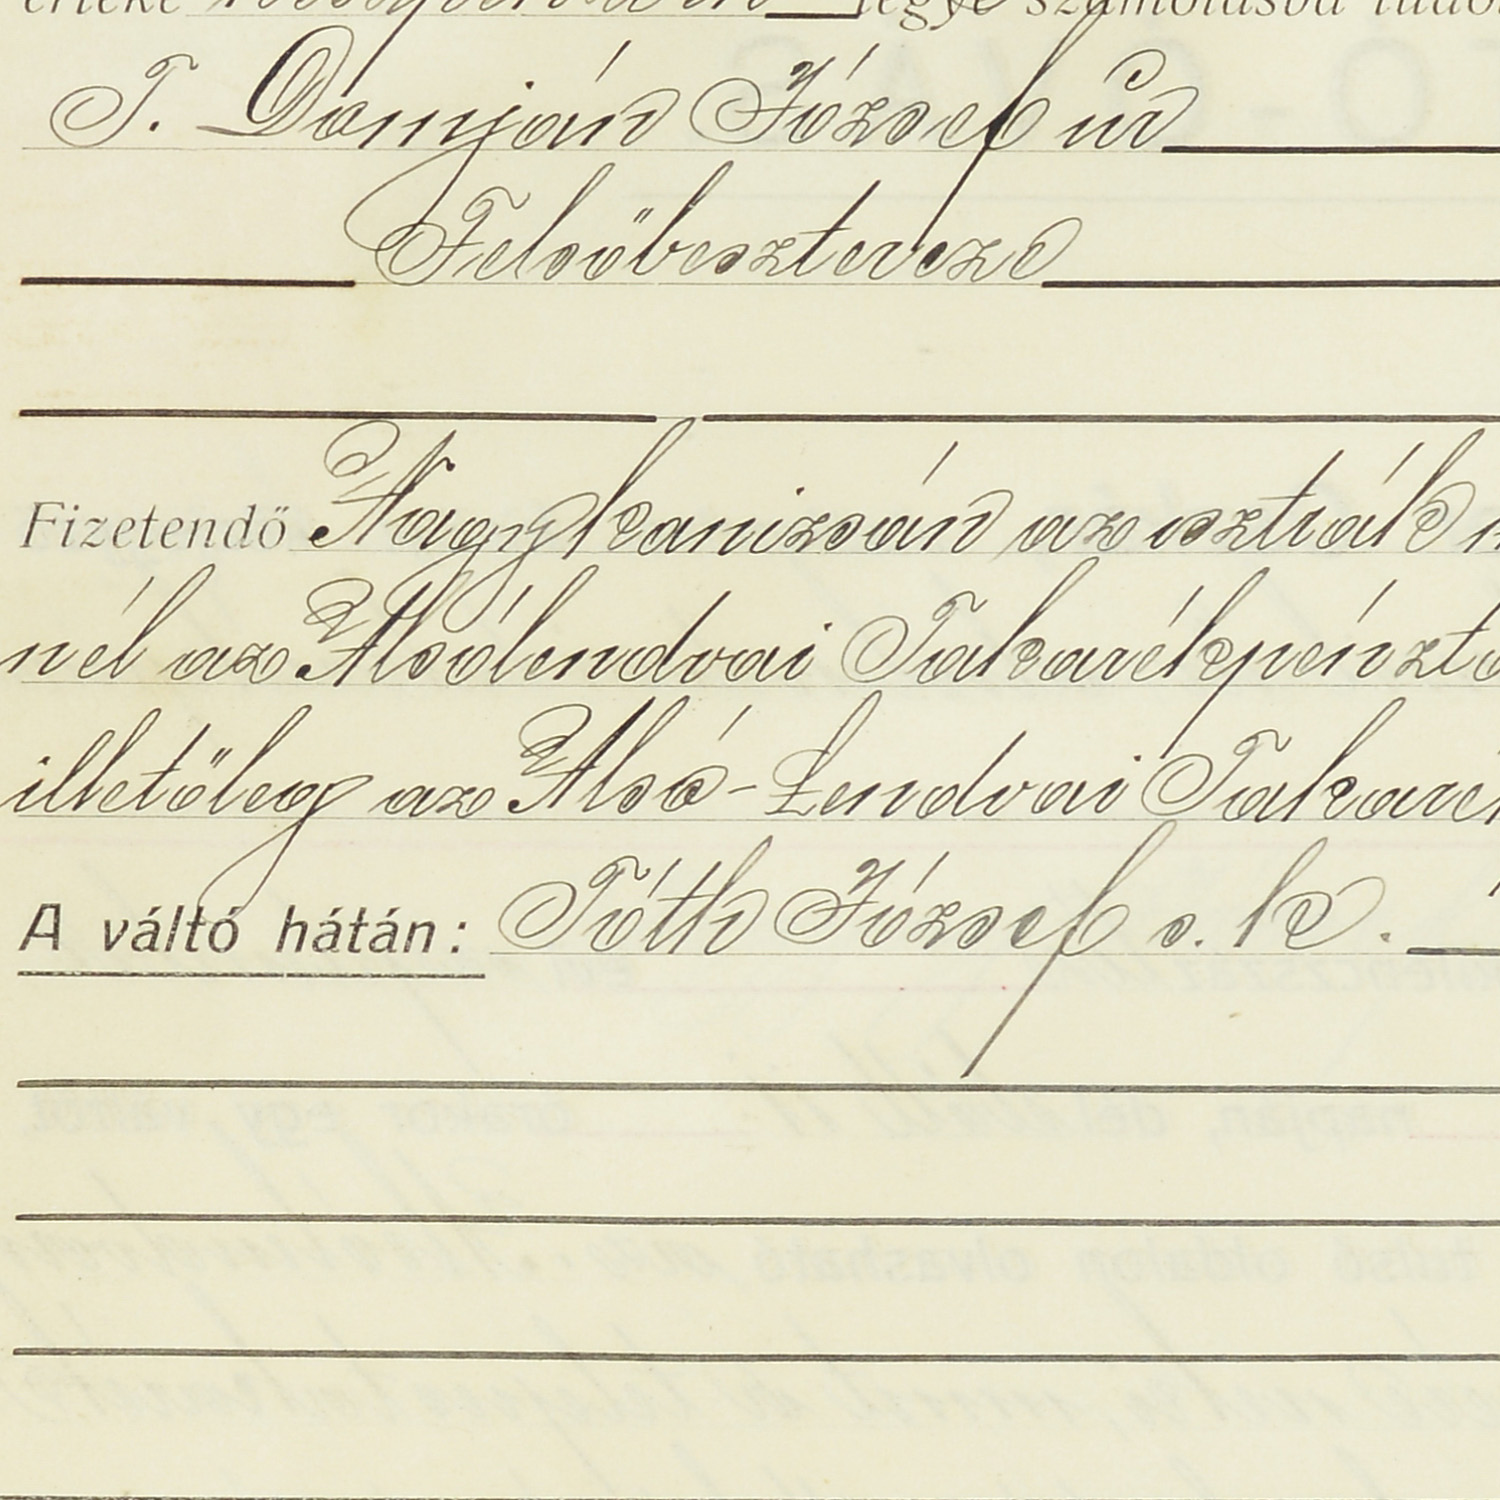 értéke készpénzben tegye számolásba
T. Domján József úr
Felsőbeszterecze
Fizetendő Nagykanizsán az osztrák
nél az Alsólendvai Takarékpénztá
illetőleg az Alsó-Lendvai Takaré
A váltó hátán: Tóth József s. k.